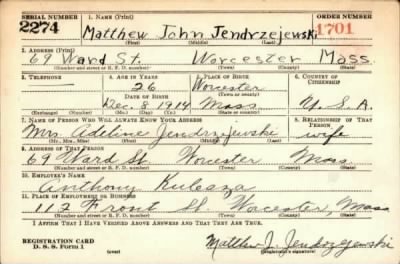 SERIAL NUMBER 1. NAME (Print) ORDER NUMBER
2274 Matthew John Jendrzejewski 1701
(First) (Middle) (Last)
2. ADDRESS (Print)
69 Ward St. Worcester Mass.
(Number and street or R. F. D. number) (Town) (County) (State)
3. TELEPHONE 4. AGE IN YEARS 5. PLACE OF BIRTH 6. COUNTRY OF CITIZENSHIP
26 Worcester
DATE OF BIRTH (Town or county)
Dec. 8 1914 Mass U.S.A.
(Exchange) (Number) (Mo.) (Day) (Yr.) (State or country)
7. NAME OF PERSON WHO WILL ALWAYS KNOW YOUR ADDRESS 8. RELATIONSHIP OF THAT PERSON
Mrs. Adeline Jendrzejewski wife
(Mr., Mrs., Miss) (First) (Middle) (Last)
9. ADDRESS OF THAT PERSON
69 Ward St. Worcester Mass
(Number and street or R. F. D. number) (Town) (County) (State)
10. EMPLOYER'S NAME
Anthony Kulesza
11. PLACE OF EMPLOYMENT OR BUSINESS
112 Front St. Worcester, Mass
(Number and street or R. F. D. number) (Town) (County) (State)
I AFFIRM THAT I HAVE VERIFIED ABOVE ANSWERS AND THAT THEY ARE TRUE.
REGISTRATION CARD
D. S. S. Form 1 (over) Matthew J. Jendrzejewski
(Registrant's signature)